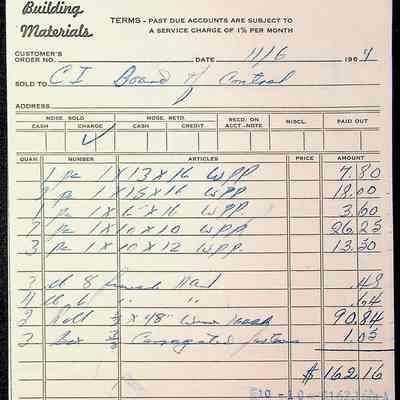 Building
Materials
TERMS - PAST DUE ACCOUNTS ARE SUBJECT TO
A SERVICE CHARGE OF 1% PER MONTH
CUSTOMER'S
ORDER NO. DATE 11/6 1964
SOLD TO C I Board of Control
ADDRESS
MDSE. SOLD MDSE. RETD. RECD. ON ACCT.-NOTE MISCL. PAID OUT
CASH CHARGE CASH CREDIT
✓
QUAN. NUMBER ARTICLES PRICE AMOUNT
1 pc 1 X 13 X 16 WPP 7.80
pc 1 X 15 X 16 WPP 18.00
1 pc 1 X 6" X 16 WPP 3.60
7 pc 1 X 10 X 10 WPP 26.25
3 pc 1 X 10 X 12 WPP. 13.50
3 8 Nail .48
4 " " .64
2 Roll X 48" 90.84
3 Box Corrugated 1.05
$ 162.16